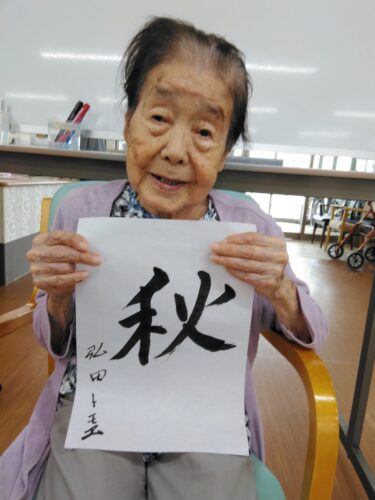 秋
弘田トモエ